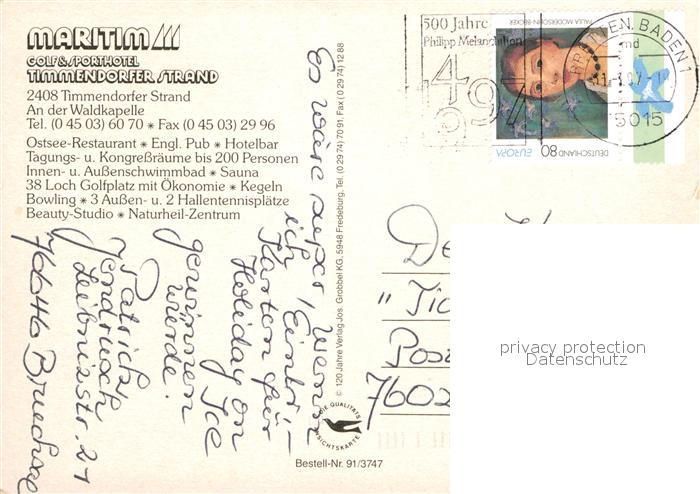 MARITIM
GOLF & SPORTHOTEL
TIMMENDORFER STRAND
2408 Timmendorfer Strand
An der Waldkapelle
Tel. (0 45 03) 60 70 ✷ Fax (0 45 03) 29 96
Ostsee-Restaurant ✷ Engl. Pub ✷ Hotelbar
Tagungs- u. Kongreßräume bis 200 Personen
Innen- u. Außenschwimmbad ✷ Sauna
38 Loch Golfplatz mit Ökonomie ✷ Kegeln
Bowling ✷ 3 Außen- u. 2 Hallentennisplätze
Beauty-Studio ✷ Naturheil-Zentrum
Es wäre super, wenn
ich Eintri-
Karten für
Holiday on
Ice
gewinnen
würde.
Patrick
Jendruch
Leibnizstr. 21
76646 Bruchsal
© 120 Jahre Verlag Jos. Grobbel KG, 5948 Fredeburg, Tel. (0 29 74) 70 91 Fax (0 29 74) 12 88
DIE QUALITÄTS
ANSICHTSKARTE
Bestell-Nr. 91/3747
500 Jahre
Philipp Melanchthon
1497
BRETTEN, BADEN 1
md
75015
PAULA MODERSOHN-BECKER
DEUTSCHLAND 80
EUROPA
"Tic
Pos
7602
privacy protection
Datenschutz